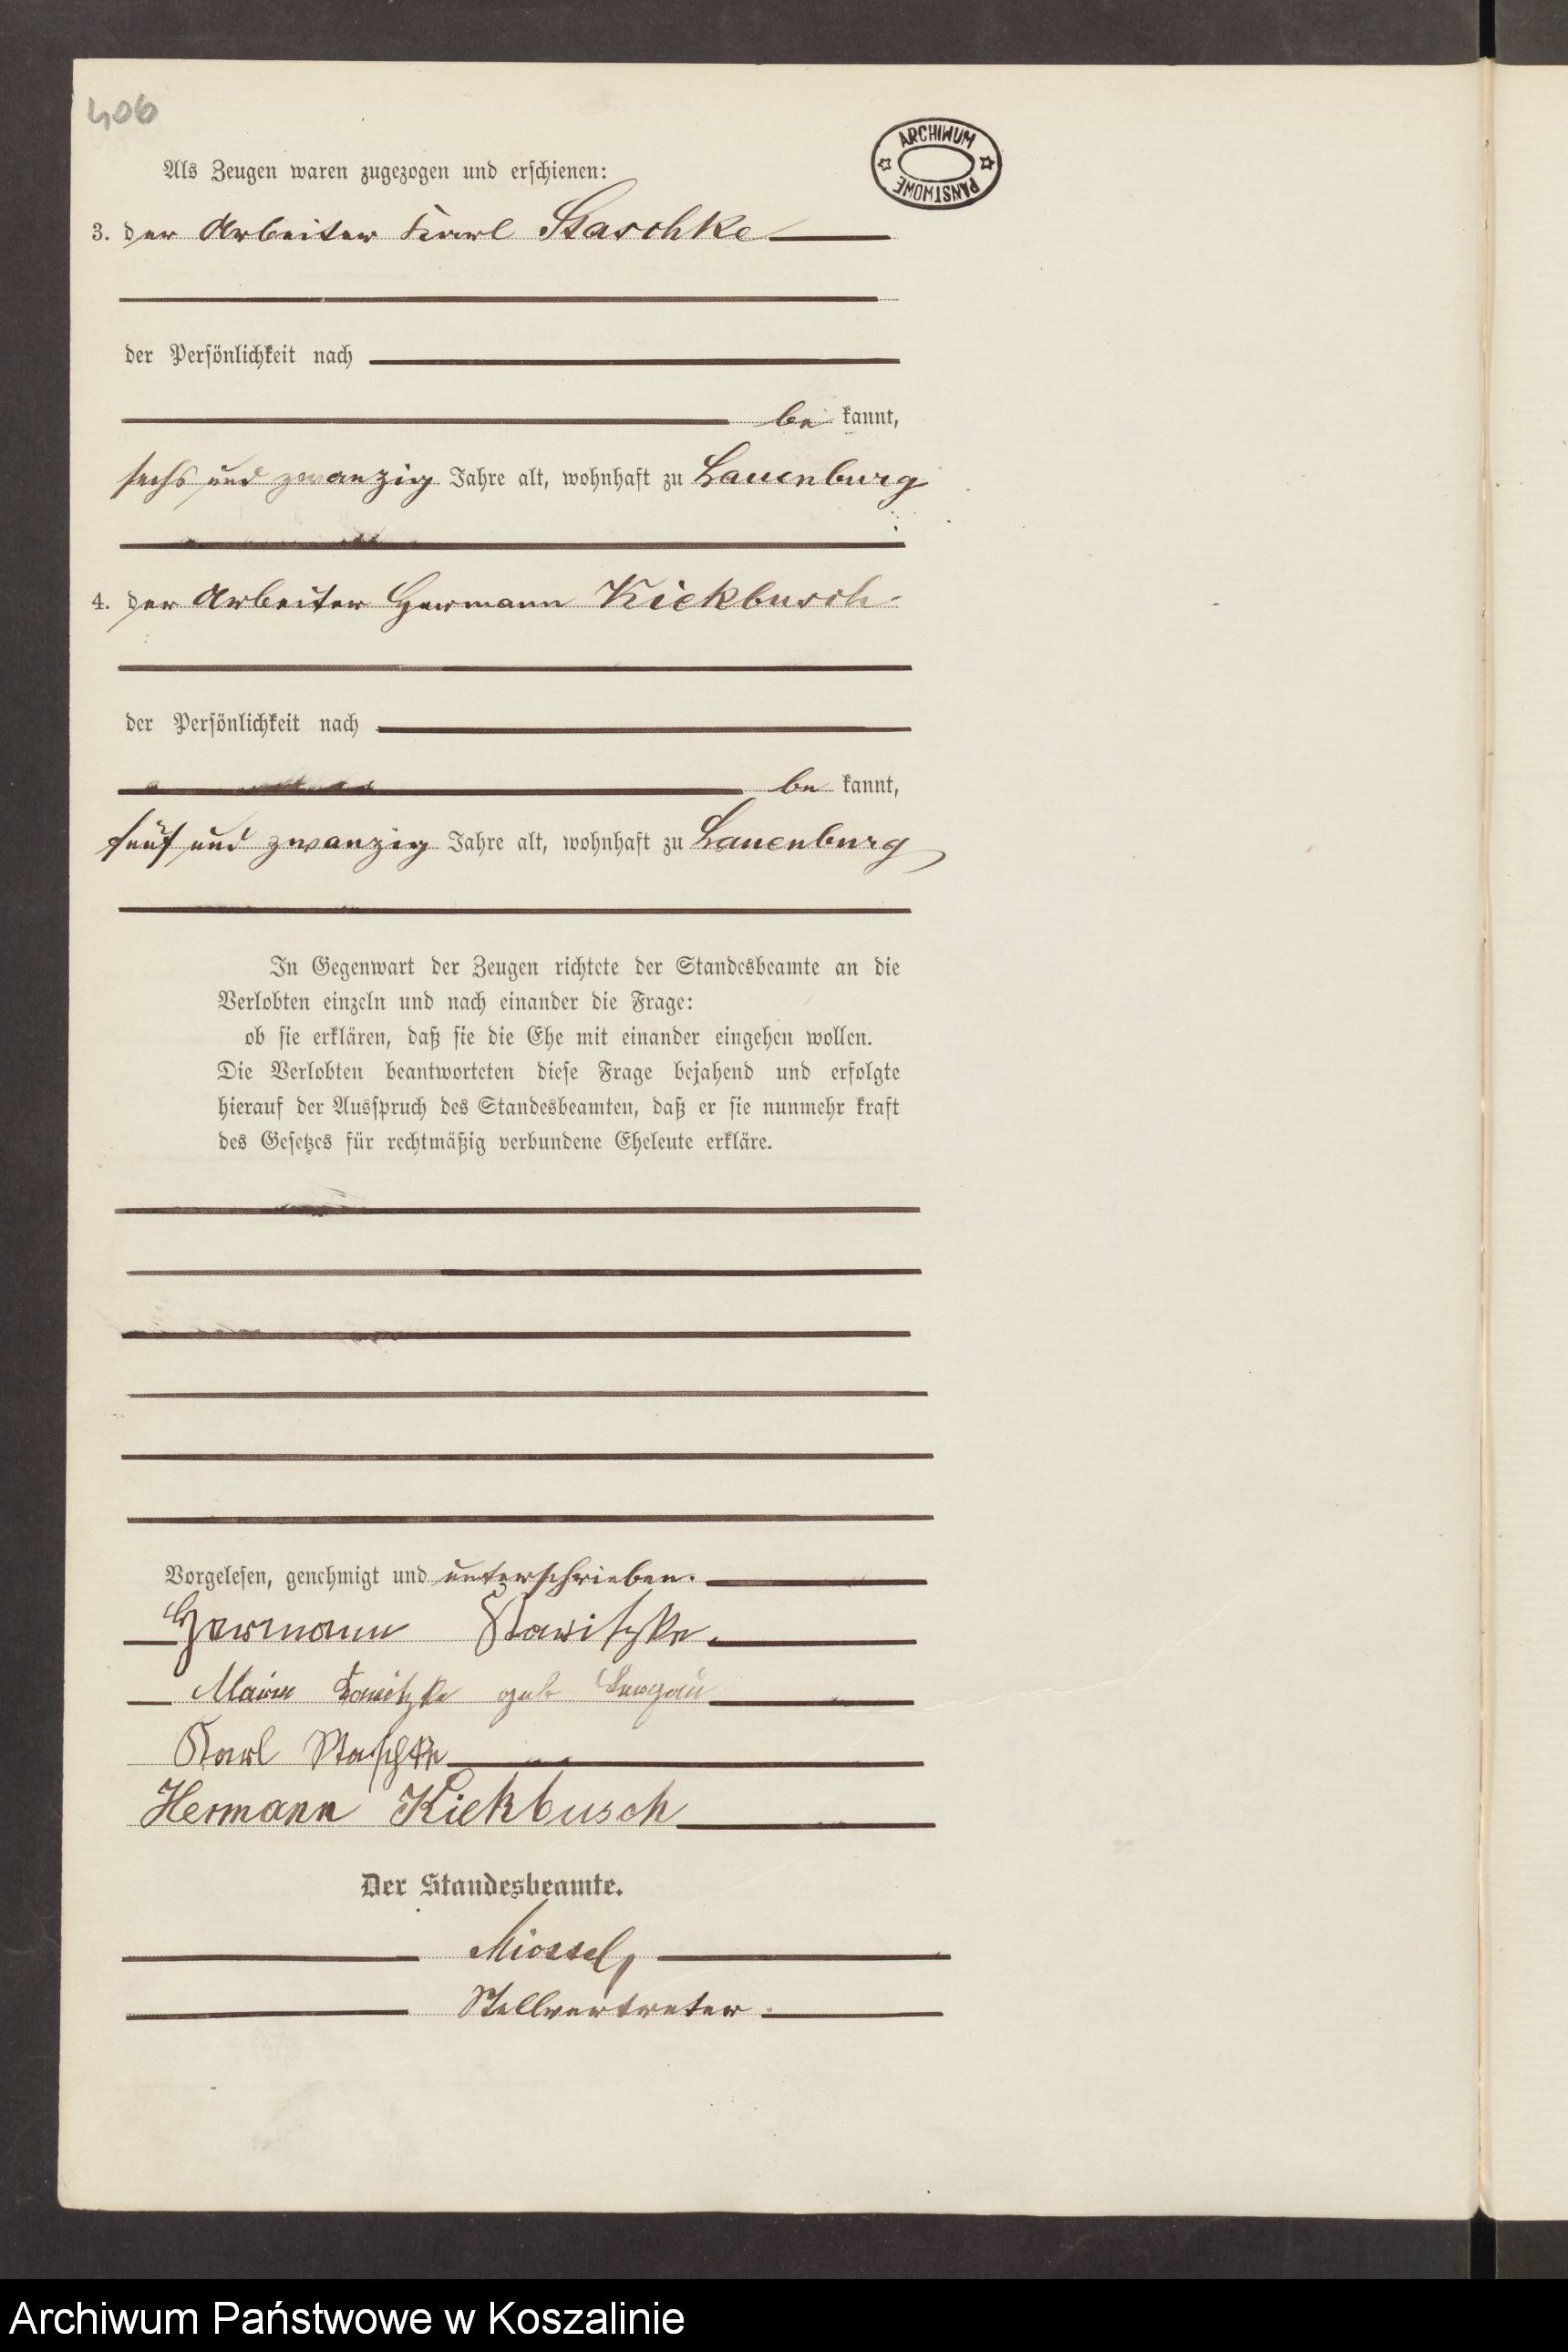 406
ARCHIWUM PAŃSTWOWE
Als Zeugen waren zugezogen und erschienen:
3. der Arbeiter Karl Staschke
der Persönlichkeit nach
be kannt,
sechs und zwanzig Jahre alt, wohnhaft zu Lauenburg
4. der Arbeiter Hermann Kiekbusch
der Persönlichkeit nach
be kannt,
fünf und zwanzig Jahre alt, wohnhaft zu Lauenburg
In Gegenwart der Zeugen richtete der Standesbeamte an die
Verlobten einzeln und nach einander die Frage:
ob sie erklären, daß sie die Ehe mit einander eingehen wollen.
Die Verlobten beantworteten diese Frage bejahend und erfolgte
hierauf der Ausspruch des Standesbeamten, daß er sie nunmehr kraft
des Gesetzes für rechtmäßig verbundene Eheleute erkläre.
Vorgelesen, genehmigt und unterschrieben.
Hermann
geb
Karl Staschke
Hermann Kiekbusch
Der Standesbeamte.
Stellvertreter.
Archiwum Państwowe w Koszalinie